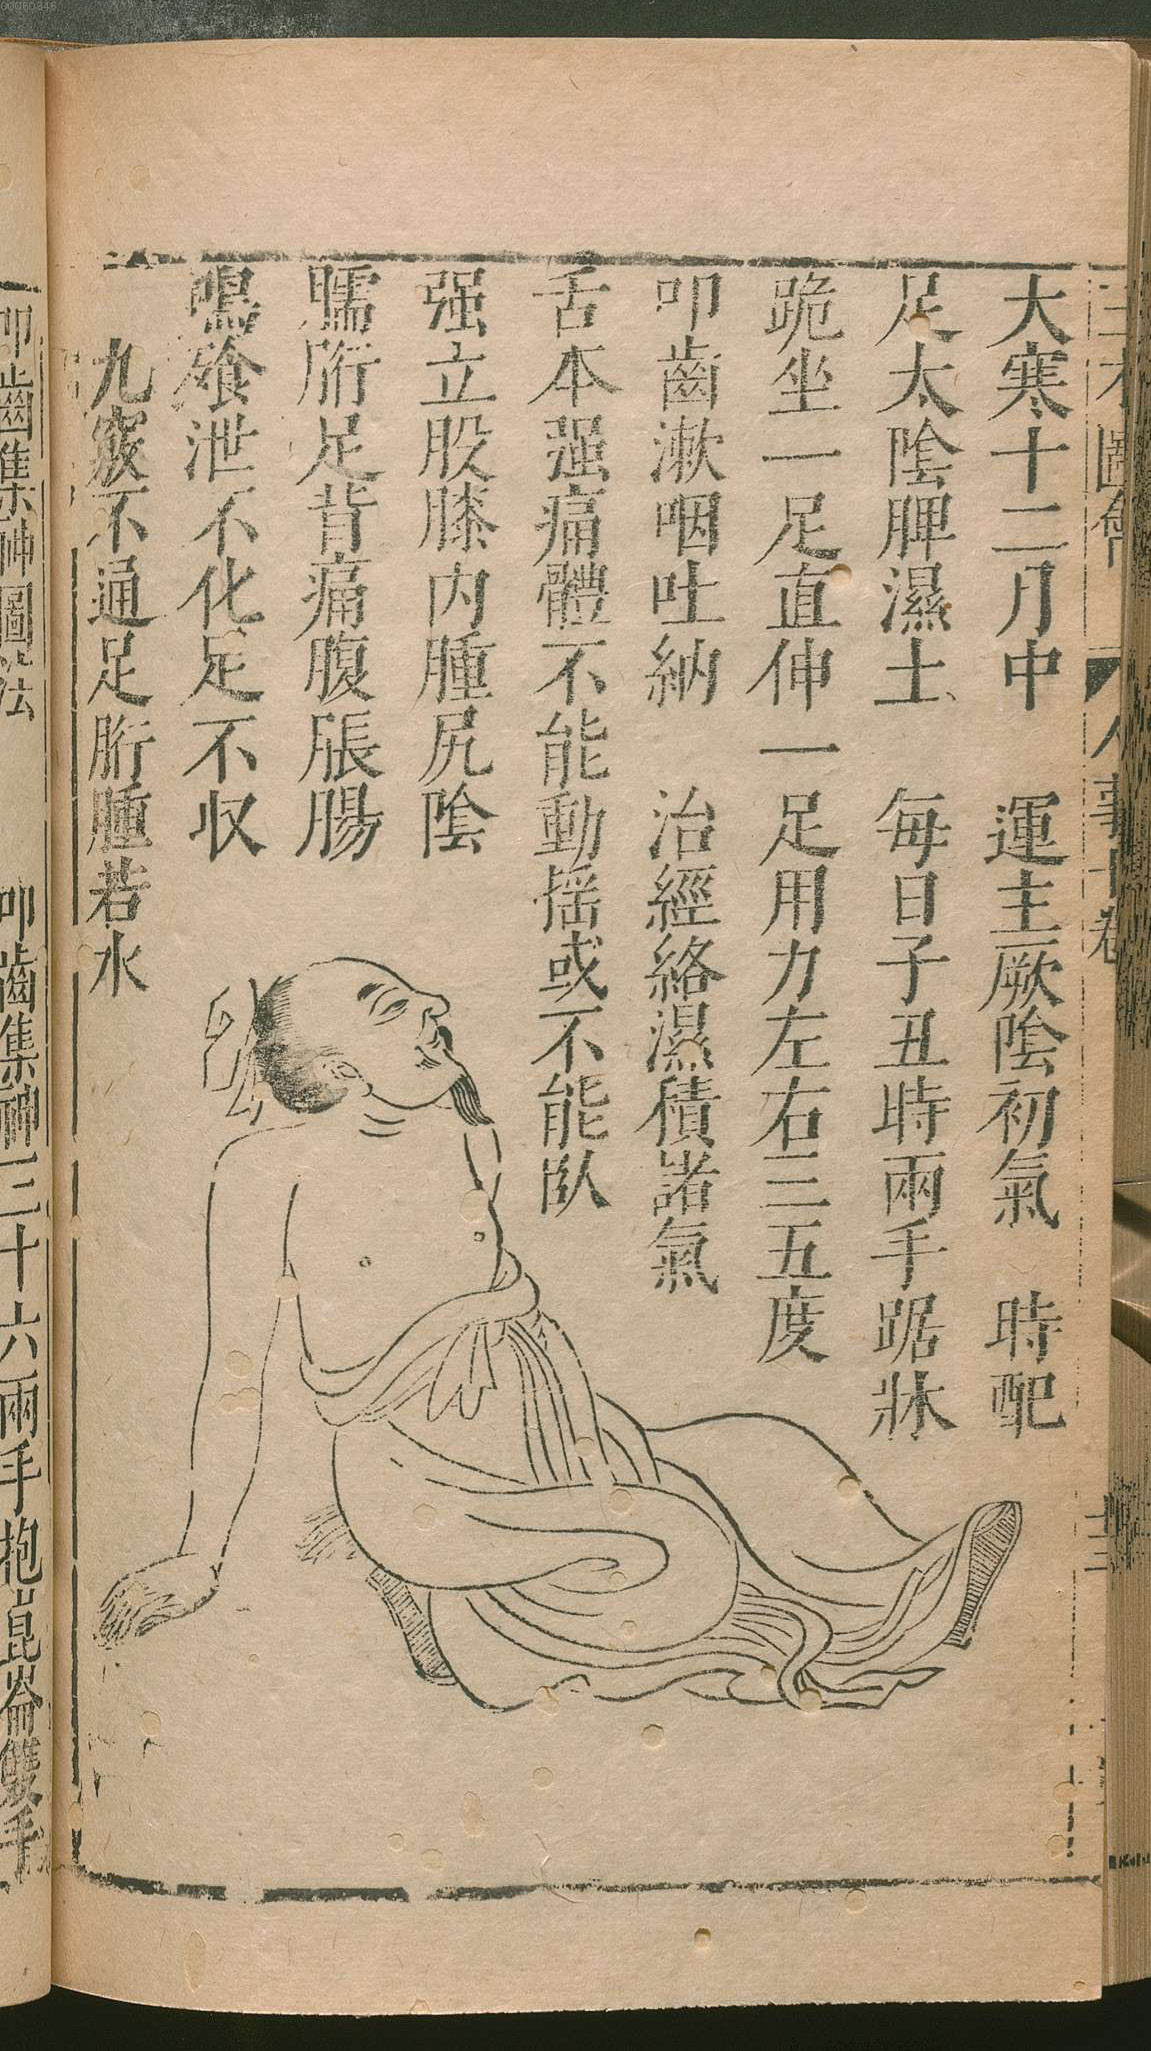 三才圖會 人事十卷 十三
大寒十二月中 運主厥陰初氣 時配
足太陰脾濕土 每日子丑時兩手踞牀
跪坐一足直伸一足用力左右三五度
叩齒漱咽吐納 治經絡濕積諸氣
舌本强痛體不能動揺或不能臥
强立股膝内腫尻陰
臑胻足背痛腹脹腸
鳴飱泄不化足不収
九竅不通足胻腫若水
叩齒集神圖法 叩齒集神三十六兩手抱崑崙雙手
00060346